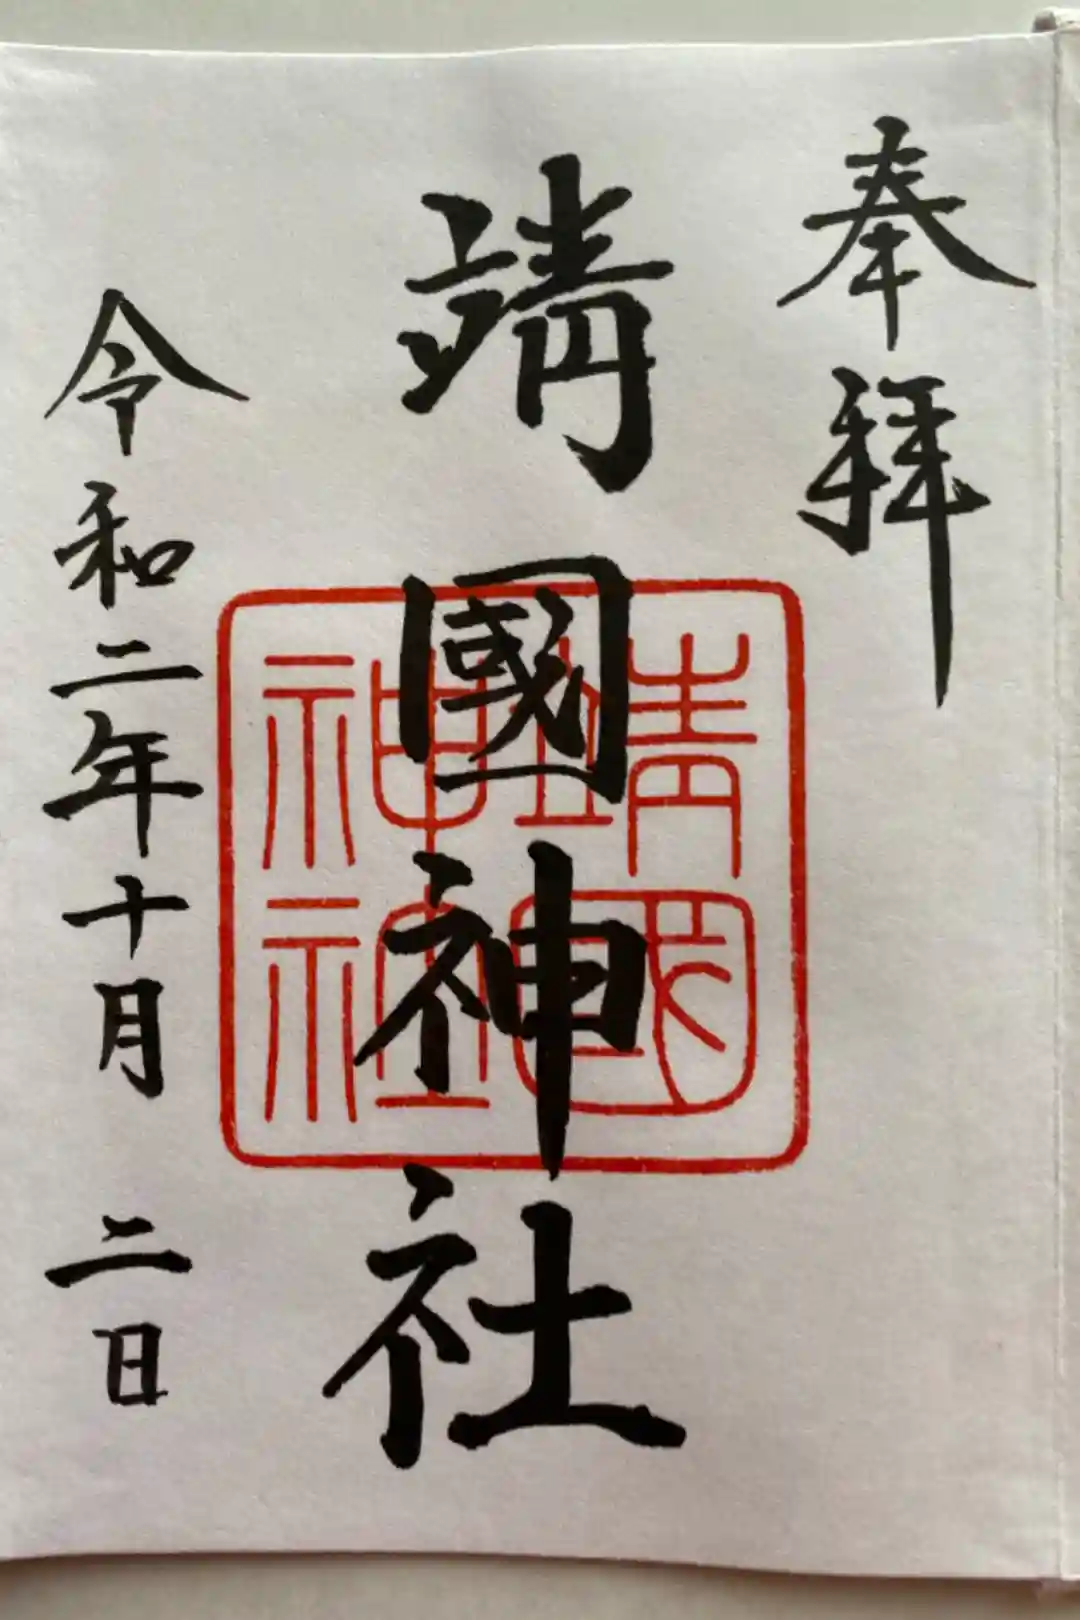 奉拝
靖國神社
靖國
神社
令和二年十月二日